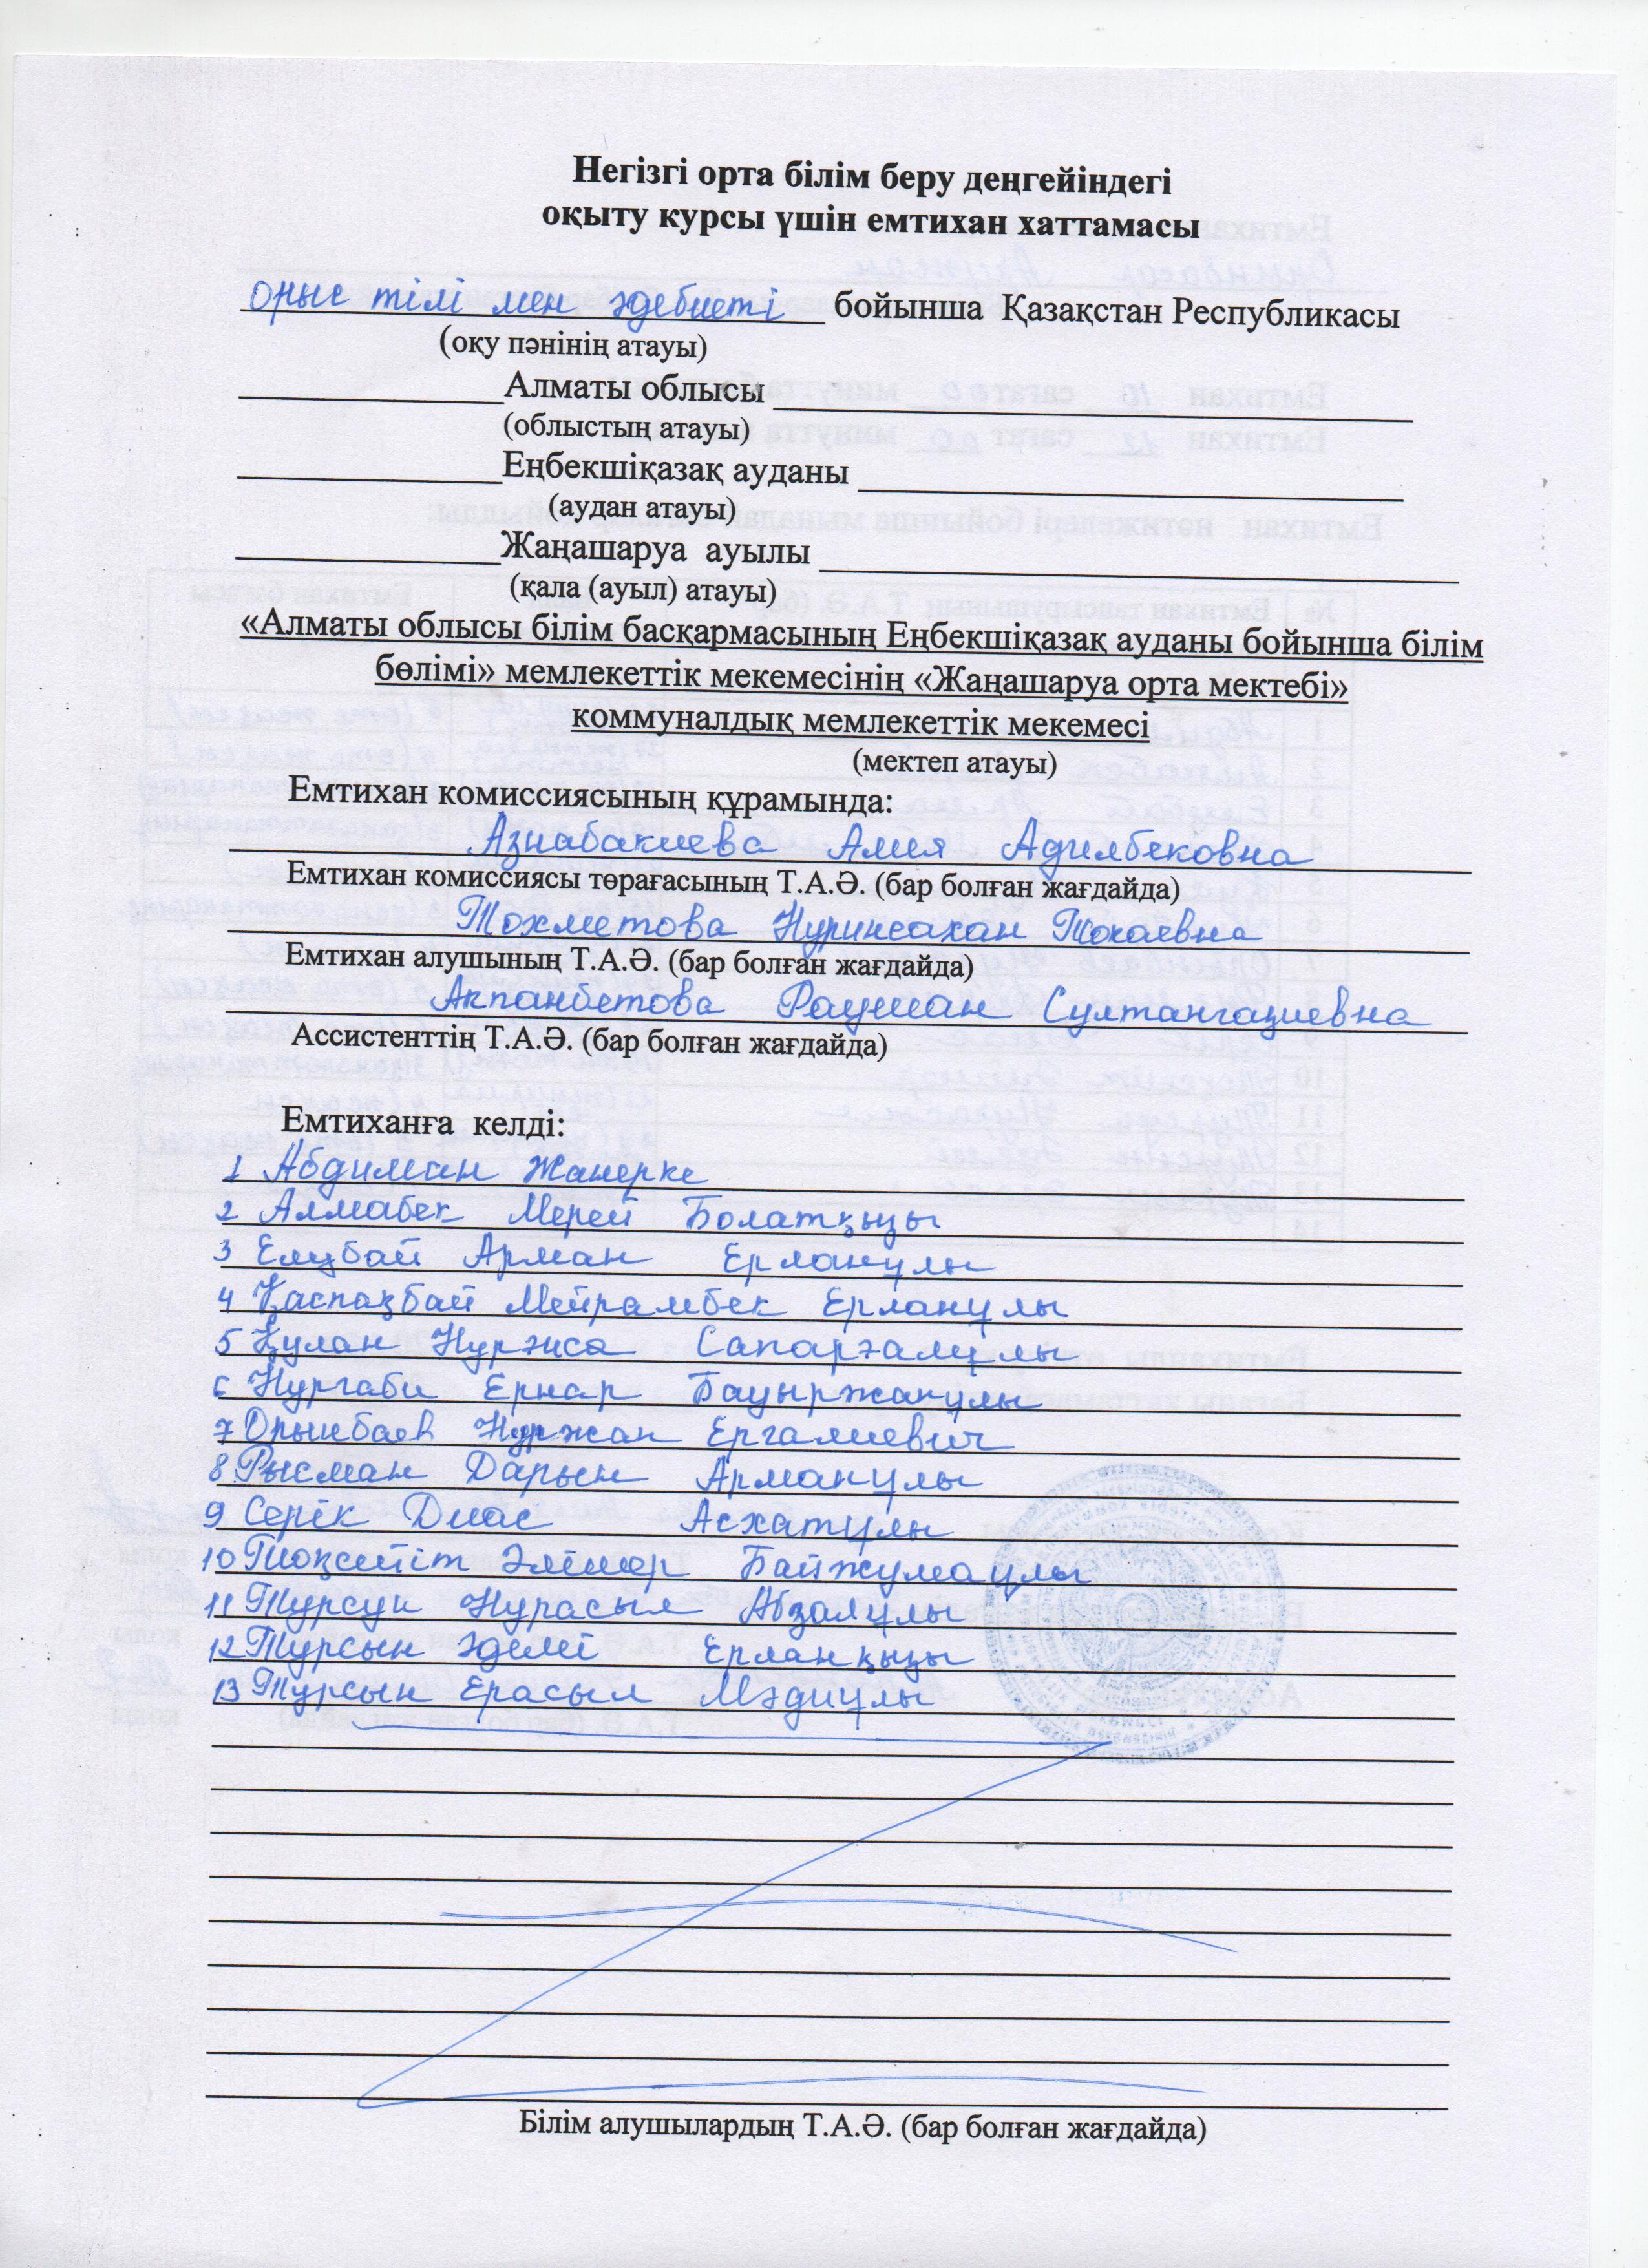 Негізгі орта білім беру деңгейіндегі
оқыту курсы үшін емтихан хаттамасы
Орыс тілі мен әдебиеті бойынша Қазақстан Республикасы
(оқу пәнінің атауы)
Алматы облысы
(облыстың атауы)
Еңбекшіқазақ ауданы
(аудан атауы)
Жаңашаруа ауылы
(қала (ауыл) атауы)
«Алматы облысы білім басқармасының Еңбекшіқазақ ауданы бойынша білім
бөлімі» мемлекеттік мекемесінің «Жаңашаруа орта мектебі»
коммуналдық мемлекеттік мекемесі
(мектеп атауы)
Емтихан комиссиясының құрамында:
Азнабакиева Алия Адилбековна
Емтихан комиссиясы төрағасының Т.А.Ә. (бар болған жағдайда)
Тохметова Нуринсахан Токаевна
Емтихан алушының Т.А.Ә. (бар болған жағдайда)
Акпанбетова Раушан Султангазиевна
Ассистенттің Т.А.Ә. (бар болған жағдайда)
Емтиханға келді:
1 Абдиман Жанерке
2 Алмабек Мерей Болатқызы
3 Елубай Арман Ерланұлы
4 Қаспақбай Мейрамбек Ерланұлы
5 Құлан Нұрғиса Сапарғалиұлы
6 Нұрғаби Ернар Бауыржанұлы
7 Орынбаев Нуржан Ергалиевич
8 Рысман Дарын Арманұлы
9 Серік Диас Асхатұлы
10 Тоқсейіт Әлінұр Байжумаұлы
11 Турсун Нұрасыл Абзалұлы
12 Тұрсын Әделі Ерланқызы
13 Тұрсын Ерасыл Мәдиұлы
Білім алушылардың Т.А.Ә. (бар болған жағдайда)